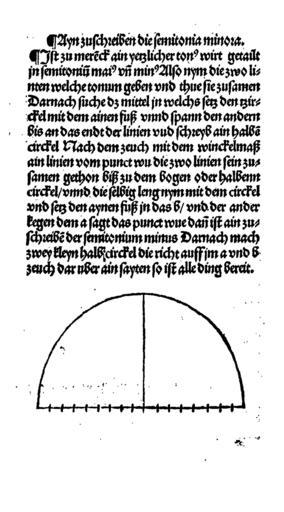 ¶Ayn zuschreiben die semitonia minora.
¶Ist zu merẽck ain yetzlicher tonꝰ wirt getailt
jn semitoniũ maiꝰ vñ minꝰ Also nym die zwo li-
nten welche tonum geben vnd thue sie zusamen
Darnach suche dz mittel jn welchs setz den tzir-
ckel mit dem ainen fuß vnnd spann den andern
bis an das endt der linien vud schreyb ain halbẽ
circkel Nach dem zeuch mit dem winckelmaß
ain linien vom punct wu die zwo linien sein zu-
samen gethon biß zu dem bogen oder halbenn
circkel/vnnd die selbig leng nym mit dem circkel
vnd setz den aynen fuß jn das b/vnd der ander
kegen dem a sagt das punct wue dañ ist ain zu-
schreibẽ der semitonium minus Darnach mach
zwey kleyn halb circkel die richt auff jm a vnd b
zeuch dar uber ain sayten so ist alle ding bereit.